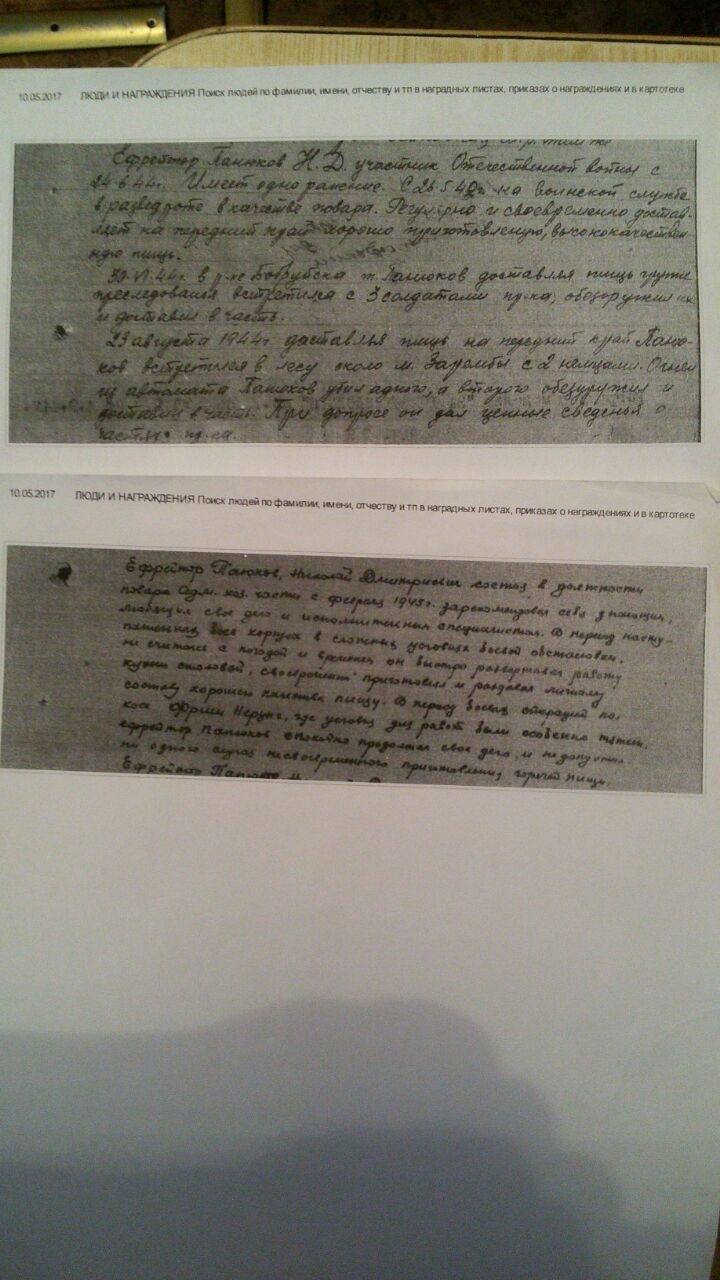 10.05.2017 ЛЮДИ И НАГРАЖДЕНИЯ Поиск людей по фамилии, имени, отчеству и тп в наградных листах, приказах о награждениях и в картотеке
Ефрейтор Панюков Н.Д. участник Отечественной войны с
24.6.44г. Имеет одно ранение. С 26.5.42г на воинской службе
в разведроте в качестве повара. Регулярно и своевременно достав-
ляет на передний край хорошо приготовленную, высококачествен-
ную пищу.
30.VI.44г. в р-не Бобруйска т. Панюков доставляя пищь группе
преследования встретился с 3 солдатами пр-ка, обезоружил их
и доставил в часть.
23 августа 1944г доставляя пищь на передний край Паню-
ков встретился в лесу около м. Заромбы с 2 немцами. Огнем
из автомата Панюков убил одного, а второго обезоружил и
доставил в часть. При допросе он дал ценные сведенья о
частях пр-ка.
10.05.2017 ЛЮДИ И НАГРАЖДЕНИЯ Поиск людей по фамилии, имени, отчеству и тп в наградных листах, приказах о награждениях и в картотеке
Ефрейтор Панюков, Николай Дмитриевич состоя в должности
повара Адм. хоз. части с февраля 1945г. зарекомендовал себя знающим,
любящим свое дело и исполнительным специалистом. В период насту-
пательных боев корпуса в сложных условиях боевой обстановки,
не считаясь с погодой и временем он быстро развертывал работу
кухни столовой, своевременно приготовлял и раздавал личному
составу хорошего качества пищу. В период боевых операций на
косе Фриш Нерунг, где условия для работ были особенно тяжелы,
ефрейтор Панюков спокойно продолжал свое дело, и не допустил
ни одного случая несвоевременного приготовления горячей пищи.
Ефрейтор Панюков